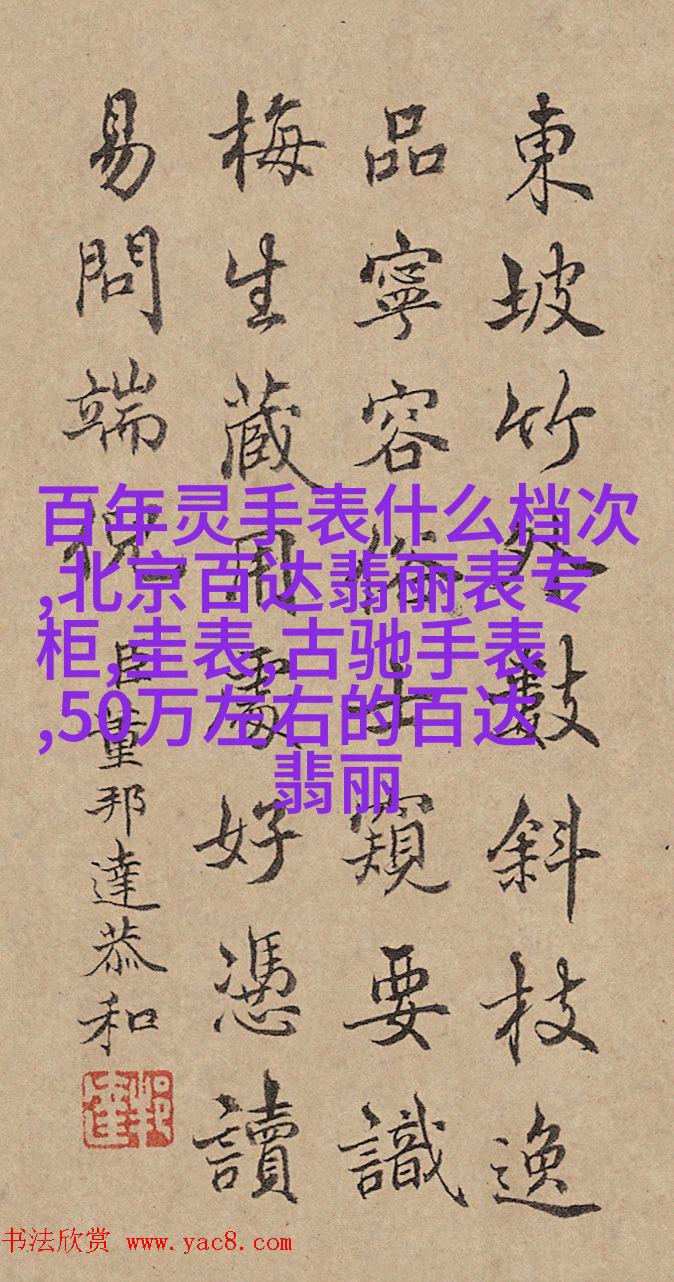 東坡竹外數斜枝逸
品寧容俗士窺要識
梅生藏用處好憑讀
易問端倪
臣董邦達恭和
百年灵手表什么档次
,北京百达翡丽表专
柜,圭表,古驰手表
,50万左右的百达
翡丽
书法欣赏 www.yac8.com